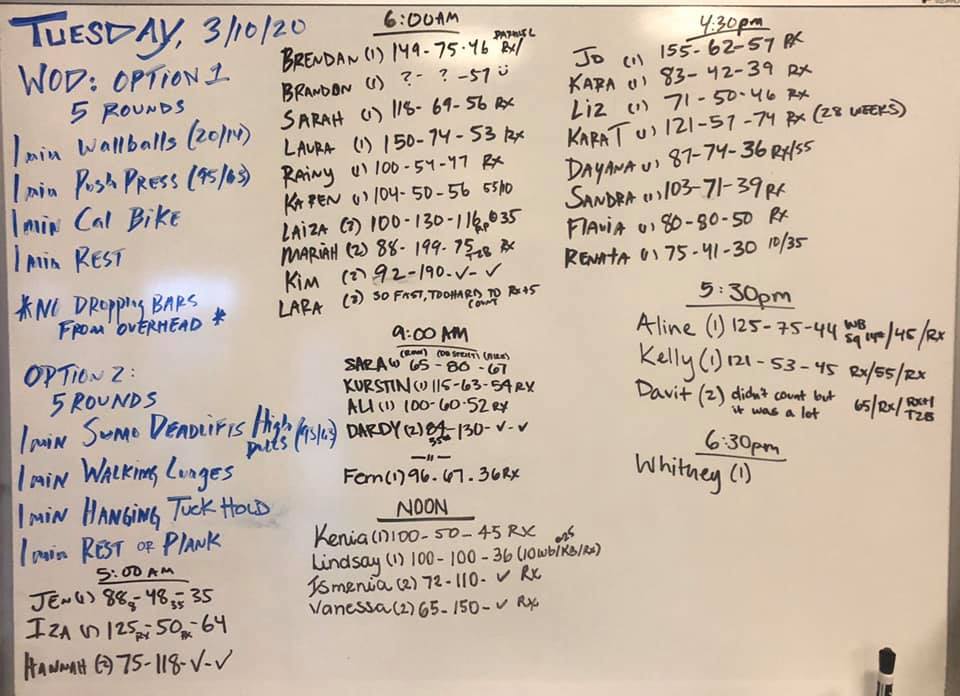 TUESDAY, 3/10/20
WOD: OPTION 1
5 ROUNDS
1 min Wallballs (20/14)
1 min Push Press (95/65)
1 min Cal Bike
1 min REST
*NO DROPPING BARS
FROM OVERHEAD *
OPTION 2:
5 ROUNDS
1 min SUMO DEADLIFTS High
Pulls (95/65)
1 min WALKING LUNGES
1 min HANGING TUCK HOLD
1 min REST or PLANK
5:00 AM
JEN (1) 88 - 48 - 35
IZA (1) 125 RX - 50 RX - 64
HANNAH (2) 75-118-✓-✓
6:00AM
BRENDAN (1) 149-75-46 RX/
BRANDON (1) ?- ? -57 ü
SARAH (1) 118- 69-56 RX
LAURA (1) 150-74-53 RX
RAINY (1) 100-54-47 RX
KAREN (1) 104-50-56 55/10
LAIZA (2) 100-130-116 @35
MARIAH (2) 88-199-75 T2B RX
KIM (2) 92-190-✓-✓
LARA (2) SO FAST, TOO HARD TO COUNT RX+5
9:00 AM
(ROW) (DB STRICT) (BIKE)
SARA (1) 65-80-67
KURSTIN (1) 115-63-54 RX
ALI (1) 100-60-52 RX
DARDY (2) 84 55# -130-✓-✓
—"—
Fern (1) 96-67-36 RX
NOON
Kenia (1) 100-50-45 RX
Lindsay (1) 100-100-36 (10wb/KB/Rx)
Ismenia (2) 72-110-✓ Rx
Vanessa (2) 65-150-✓ Rx
4:30pm
JO (1) 155-62-57 RX
KARA (1) 83-42-39 RX
LIZ (1) 71-50-46 RX
KARA T (1) 121-57-74 RX (28 WEEKS)
DAYANA (1) 87-74-36 RX/55
SANDRA (1) 103-71-39 RX
FLAVIA (1) 80-80-50 RX
RENATA (1) 75-41-30 10/35
5:30pm
Aline (1) 125-75-44 WB sq 14# /45/RX
Kelly (1) 121-53-45 RX/55/RX
Davit (2) didn't count but
it was a lot 65/RX/RX+1 T2B
6:30pm
Whitney (1)